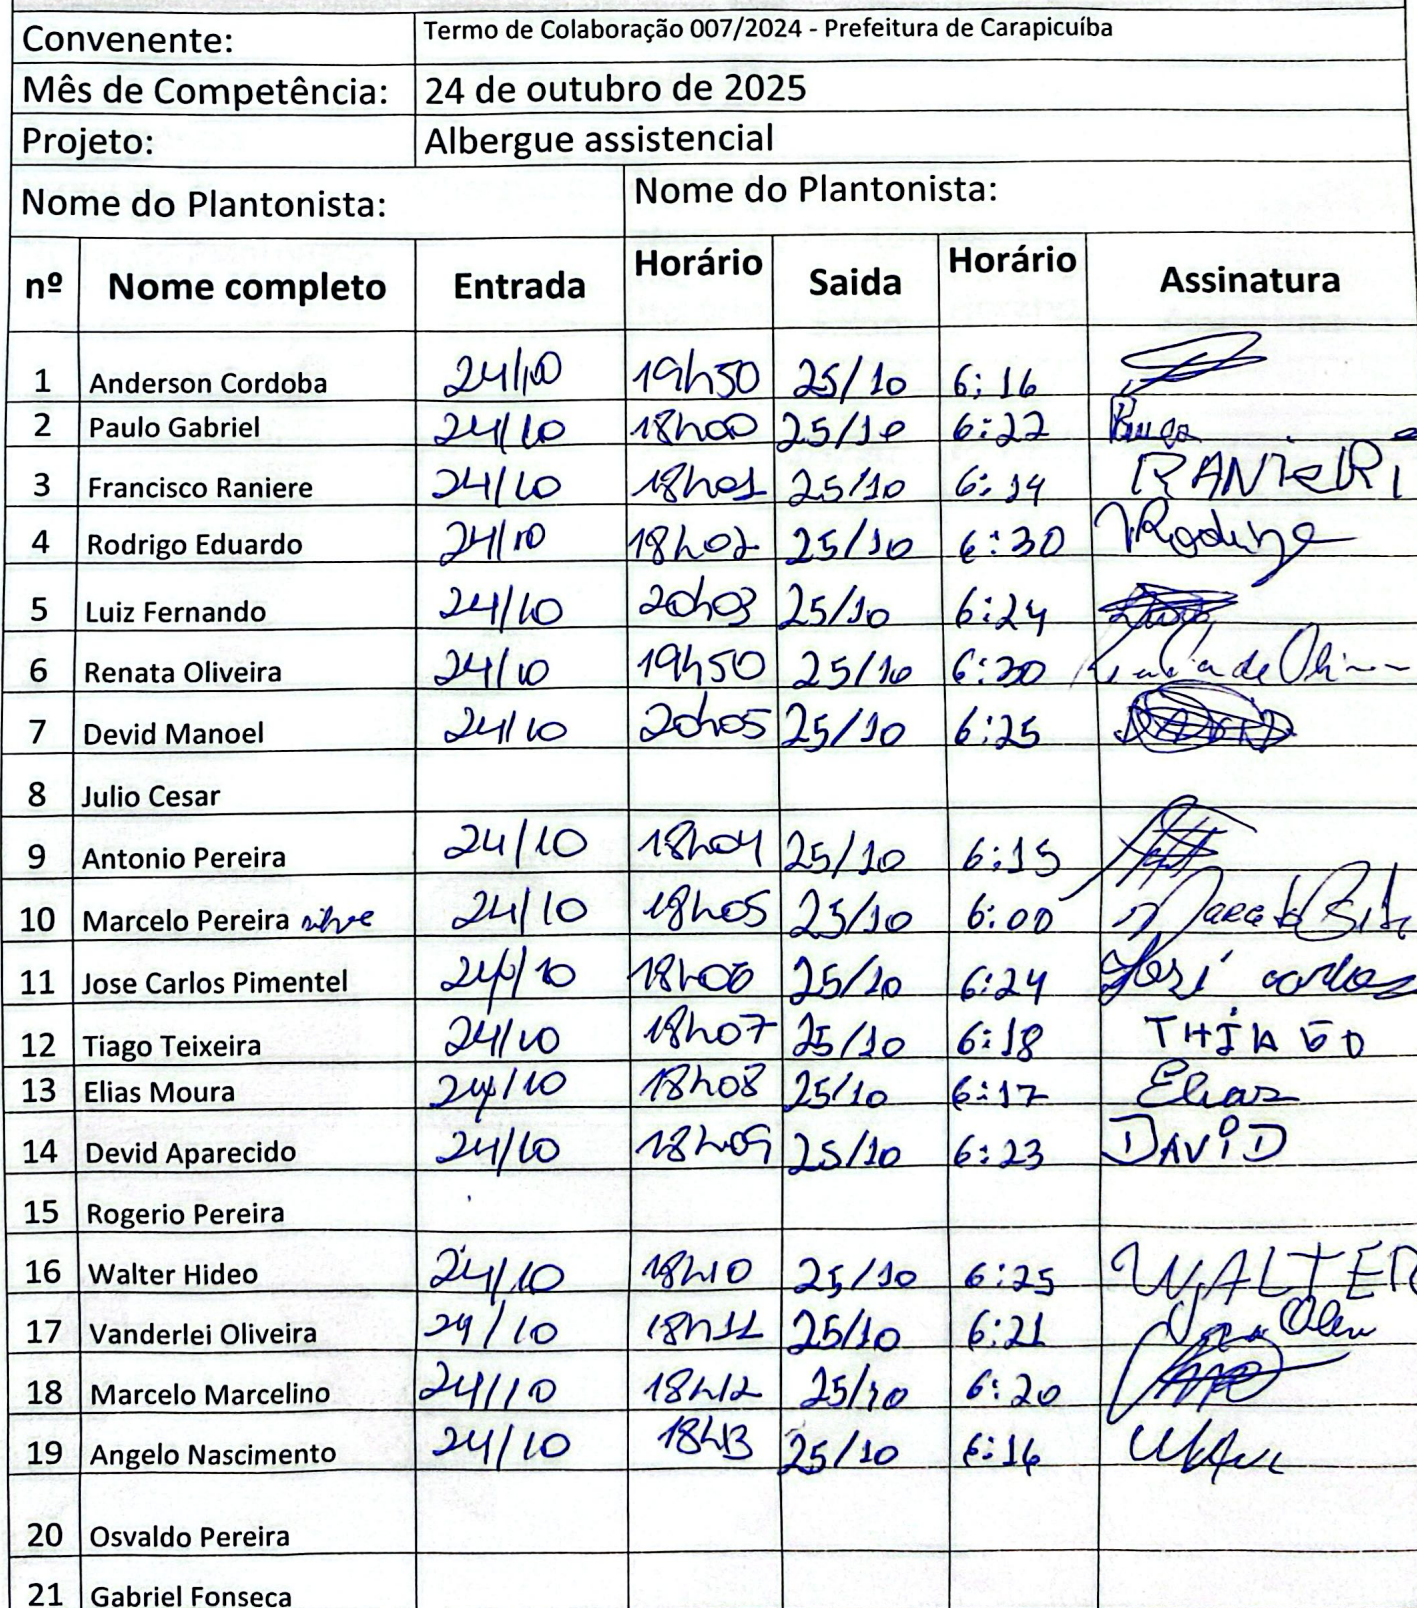 Convenente: Termo de Colaboração 007/2024 - Prefeitura de Carapicuíba
Mês de Competência: 24 de outubro de 2025
Projeto: Albergue assistencial
Nome do Plantonista: Nome do Plantonista:
nº Nome completo Entrada Horário Saida Horário Assinatura
1 Anderson Cordoba 24/10 19h50 25/10 6:16
2 Paulo Gabriel 24/10 18h00 25/10 6:22
3 Francisco Raniere 24/10 18h01 25/10 6:19 RANIERI
4 Rodrigo Eduardo 24/10 18h02 25/10 6:30 Rodrigo
5 Luiz Fernando 24/10 20h03 25/10 6:24
6 Renata Oliveira 24/10 19h50 25/10 6:20 de
7 Devid Manoel 24/10 20h05 25/10 6:25
8 Julio Cesar
9 Antonio Pereira 24/10 18h04 25/10 6:15
10 Marcelo Pereira 24/10 18h05 25/10 6:00
11 Jose Carlos Pimentel 24/10 18h06 25/10 6:24 José carlos
12 Tiago Teixeira 24/10 18h07 25/10 6:18 THIAGO
13 Elias Moura 24/10 18h08 25/10 6:17 Elias
14 Devid Aparecido 24/10 18h09 25/10 6:23 DAVID
15 Rogerio Pereira
16 Walter Hideo 24/10 18h10 25/10 6:25 WALTER
17 Vanderlei Oliveira 24/10 18h11 25/10 6:21
18 Marcelo Marcelino 24/10 18h12 25/10 6:20
19 Angelo Nascimento 24/10 18h13 25/10 6:16
20 Osvaldo Pereira
21 Gabriel Fonseca